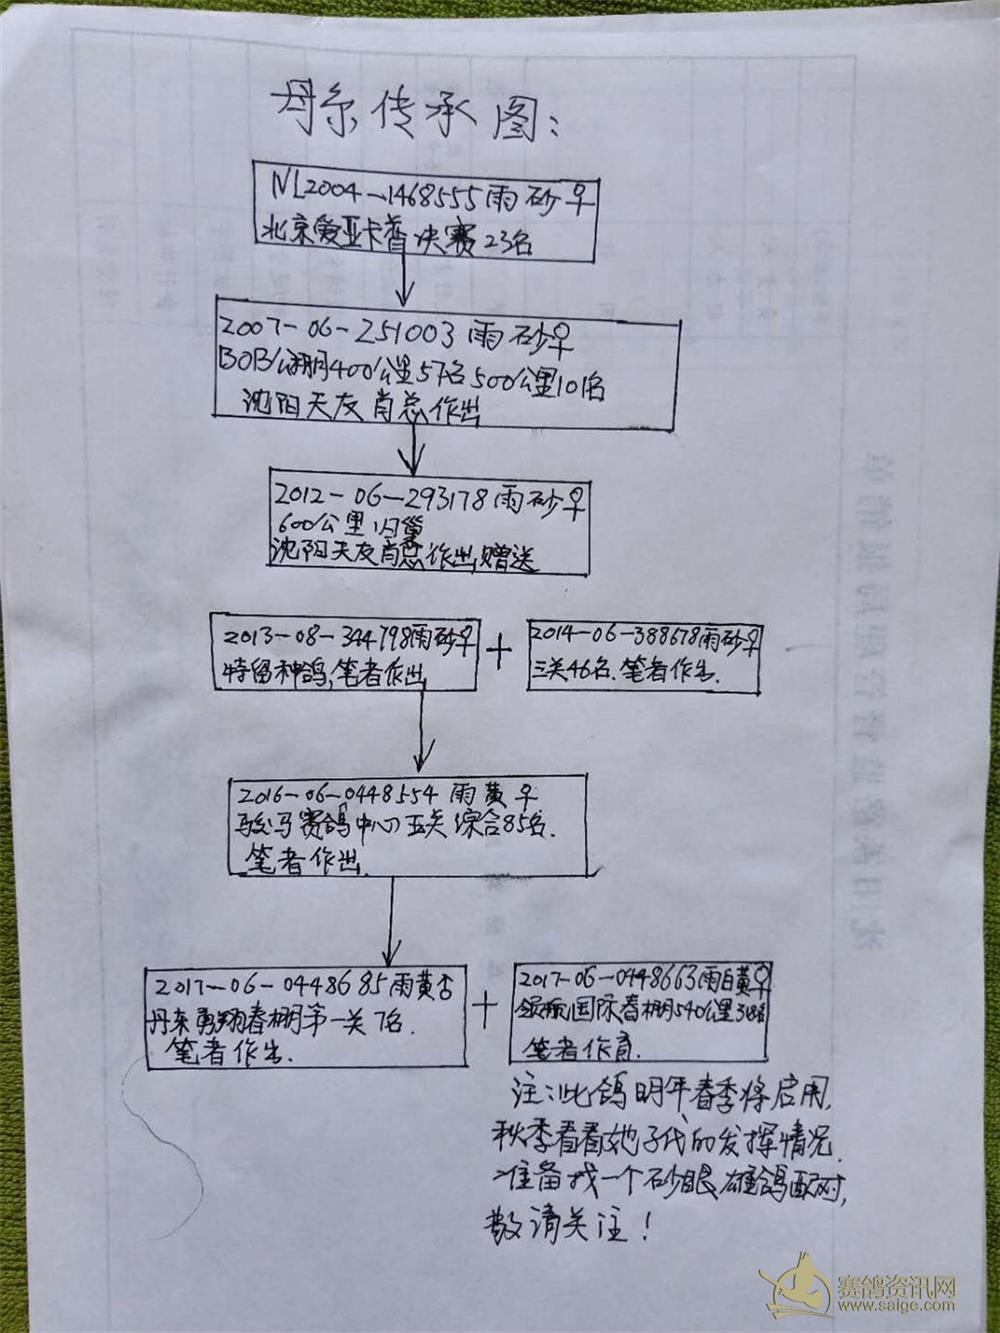 丹尔传承图:
NL2004-1468555雨砂♀
北京爱亚卡普决赛23名
2007-06-251003雨砂♀
BOB公棚400公里57名500公里101名
沈阳天友肖总作出
2012-06-293178雨砂♀
600公里归巢
沈阳天友肖总作出,赠送
2013-08-344798雨砂♀
特留种鸽,笔者作出
+
2014-06-388678雨砂♀
三关46名.笔者作出.
2016-06-0448554雨黄♀
骏马赛鸽中心五关综合85名.
笔者作出.
2017-06-0448685雨黄♂
丹东勇翔春棚第一关7名.
笔者作出.
+
2017-06-0448663雨白黄♀
领航国际春棚540公里318名
笔者作育.
注:此鸽明年春季将启用,
秋季看看她子代的发挥情况.
准备找一个砂眼雄鸽配对,
敬请关注!
赛鸽资讯网
www.saige.com